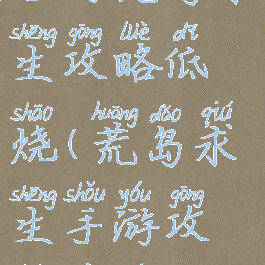 shēng gōng lüè dī
生攻略低
shāo huāng dǎo qiú
烧(荒岛求
shēng shǒu yóu gōng
生手游攻